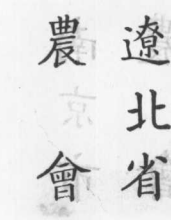 遼北省
農會